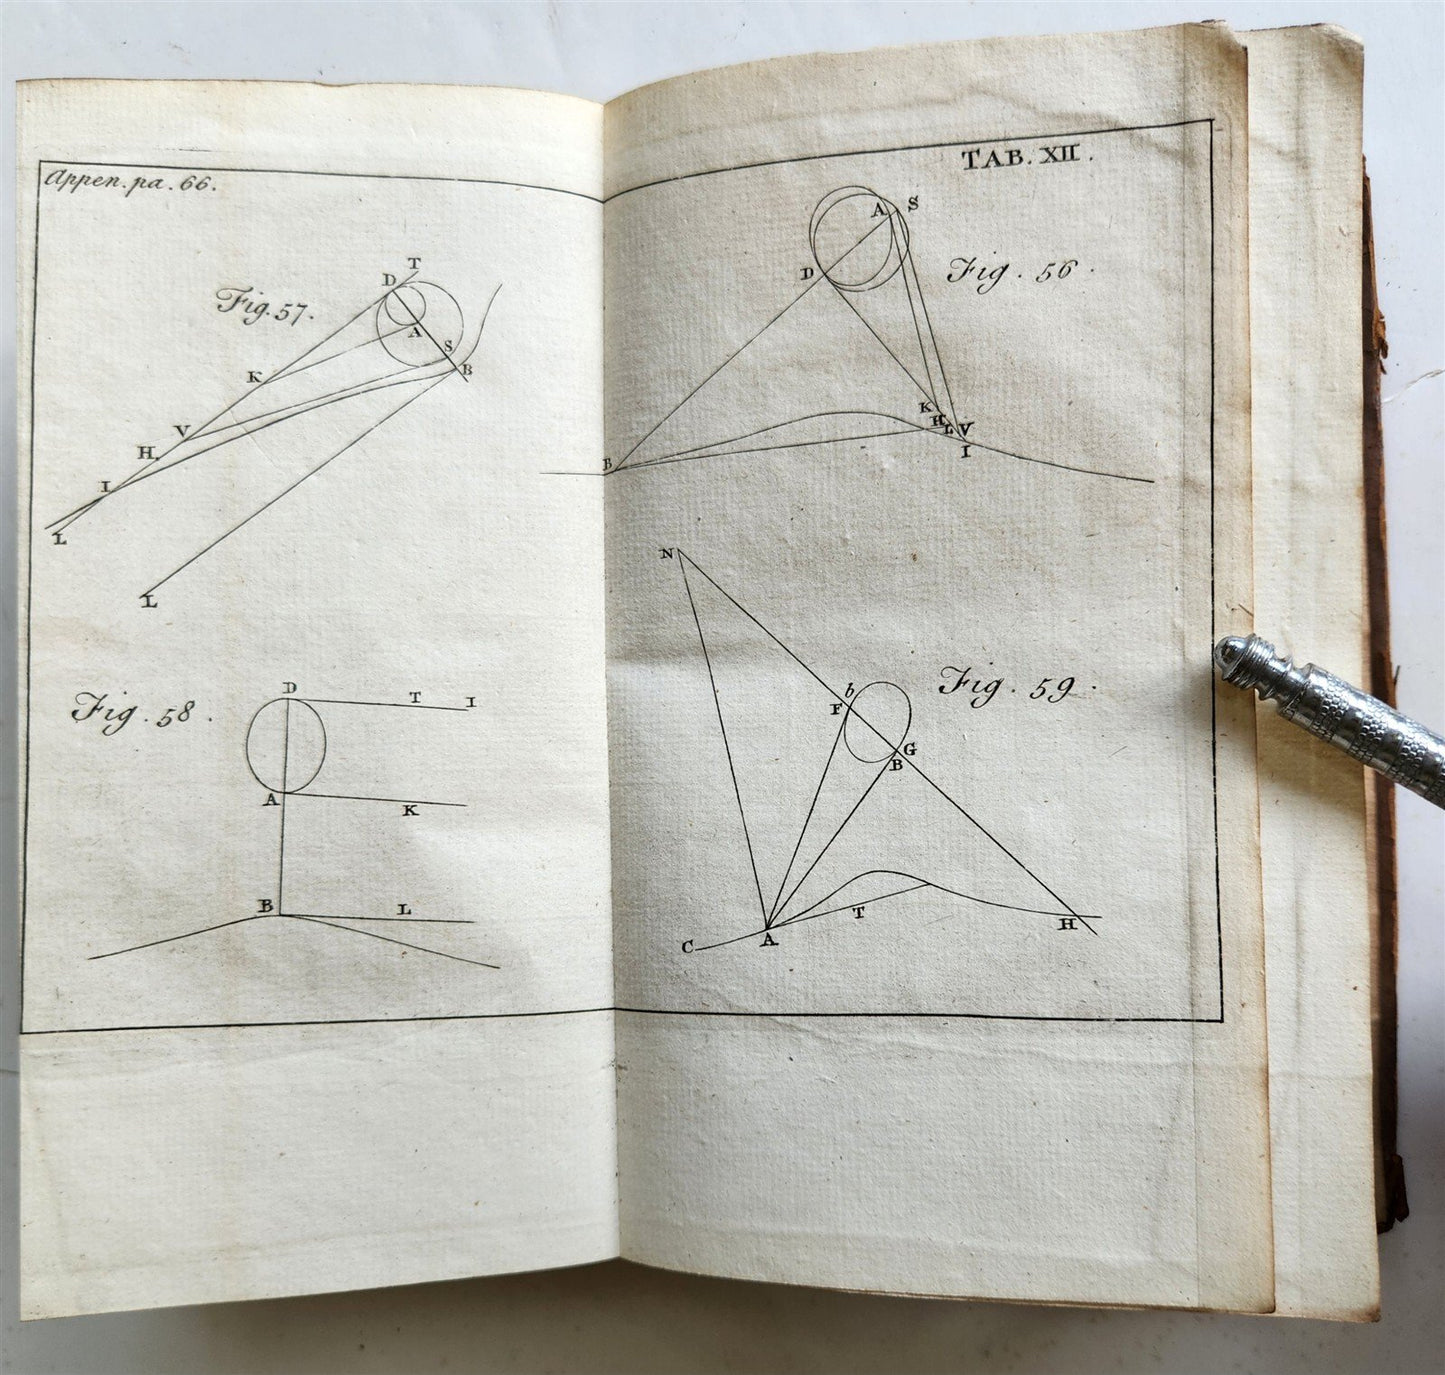 Appen. pa. 66.
TAB. XII.
Fig. 57.
T
D
A
S
B
K
V
H.
I
L
L
Fig. 56.
A S
D
K
H
L V
I
B
Fig. 58.
D T I
A K
B L
Fig. 59.
N
b
F
G
B
T
C A H